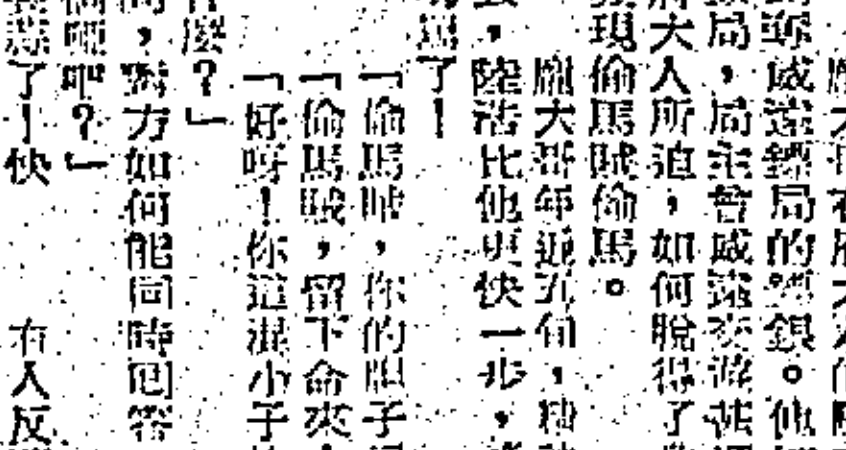 威遠鏢局的鏢銀。他
局，局主曾威遠交游甚
大人所迫，如何脫得了
現偷馬賊偷馬。
龐大哥年近五旬，精
陸浩比他更快一步，
了！
「偷馬賊，你的膽子
「偷馬賊，留下命來
「好呀！你這混小子
麼？」
，對方如何能同時回答
吧？」
了！快　　有人反